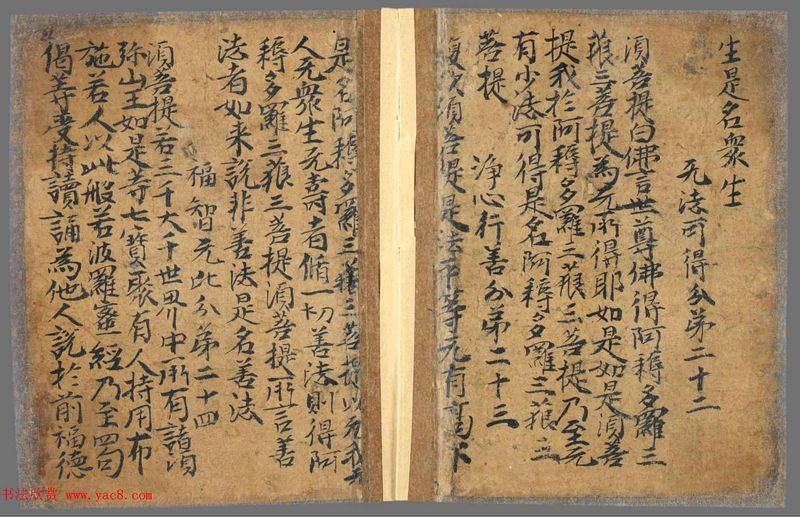 生是名衆生
无法可得分第二十二
須菩提白佛言世尊佛得阿耨多羅三
藐三菩提為无所得耶如是如是須菩
提我於阿耨多羅三藐三菩提乃至无
有少法可得是名阿耨多羅三藐三
菩提
淨心行善分第二十三
復次須菩提是法平等无有高下
是名阿耨多羅三藐三菩提以无我无
人无衆生无壽者脩一切善法則得阿
耨多羅三藐三菩提須菩提所言善
法者如来說非善法是名善法
福智无比分第二十四
須菩提若三千大千世界中所有諸須
弥山王如是等七寶聚有人持用布
施若人以此般若波羅蜜經乃至四句
偈等受持讀誦為他人說於前福德
书法欣赏 www.yac8.com